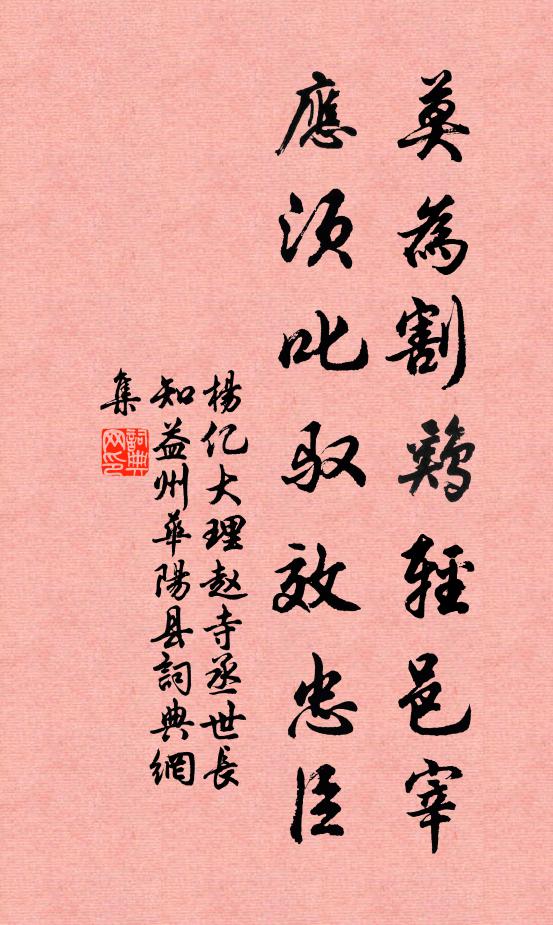 莫為割鶏輕邑宰
應須叱馭效忠臣
楊亿大理赵寺丞世長
知益州華陽县詞典網
集
詞典网印